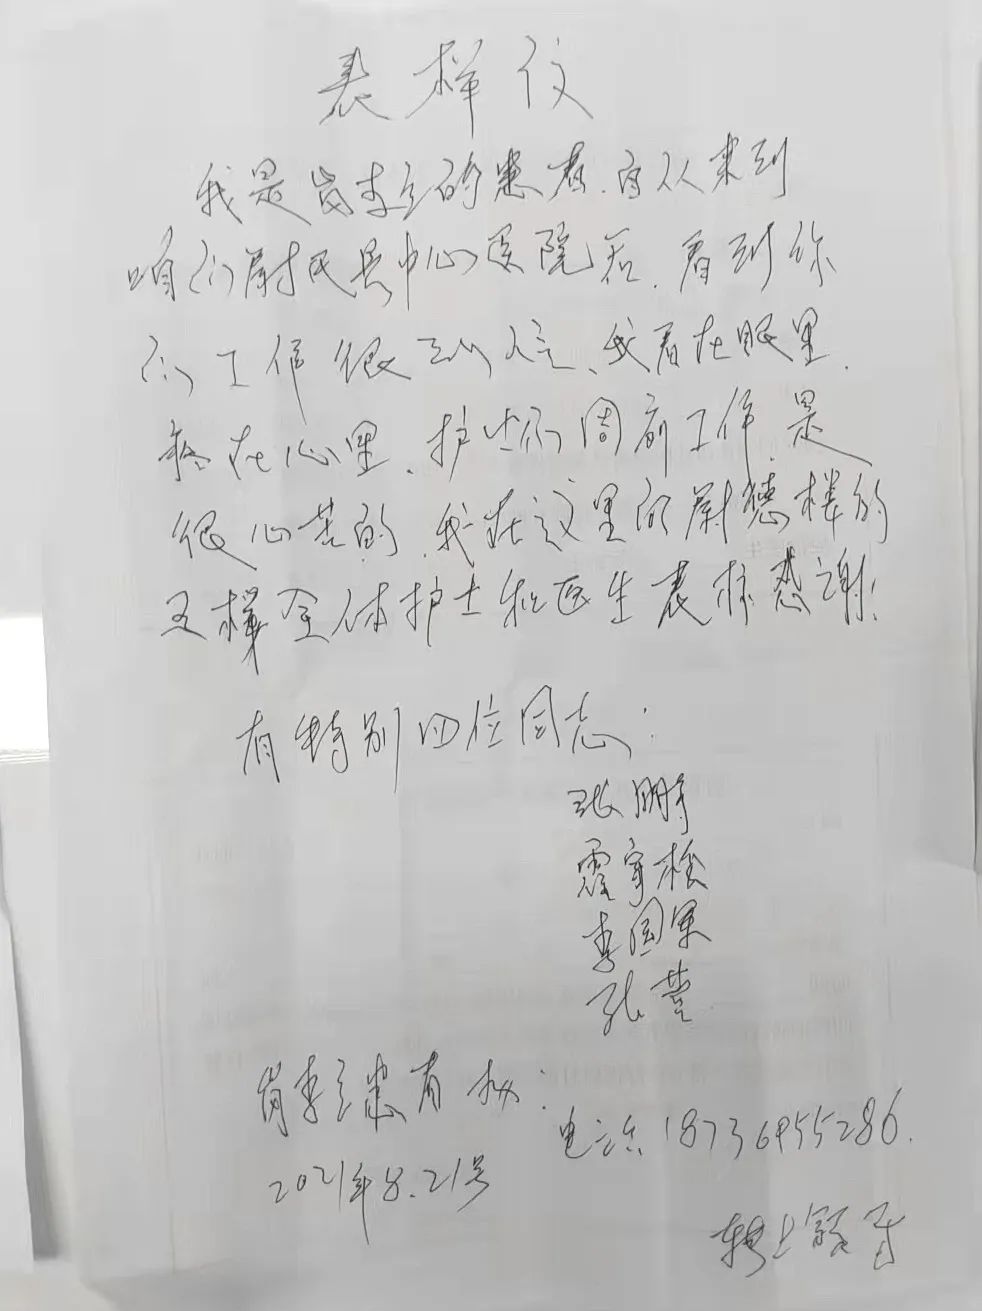 表样仪
我是岗李乡的患者.自从来到
咱们尉氏县中心医院后.看到你
们工作很到位、我看在眼里.
疼在心里.护士们周前工作.是
很心苦的.我在这里向尉德楼的
五楼全体护士和医生表标感谢!
有特别四位同志:
张鹏宇
霍宇
李国果
张莹
岗李乡患者
电话18736955286.
2021年8.21号